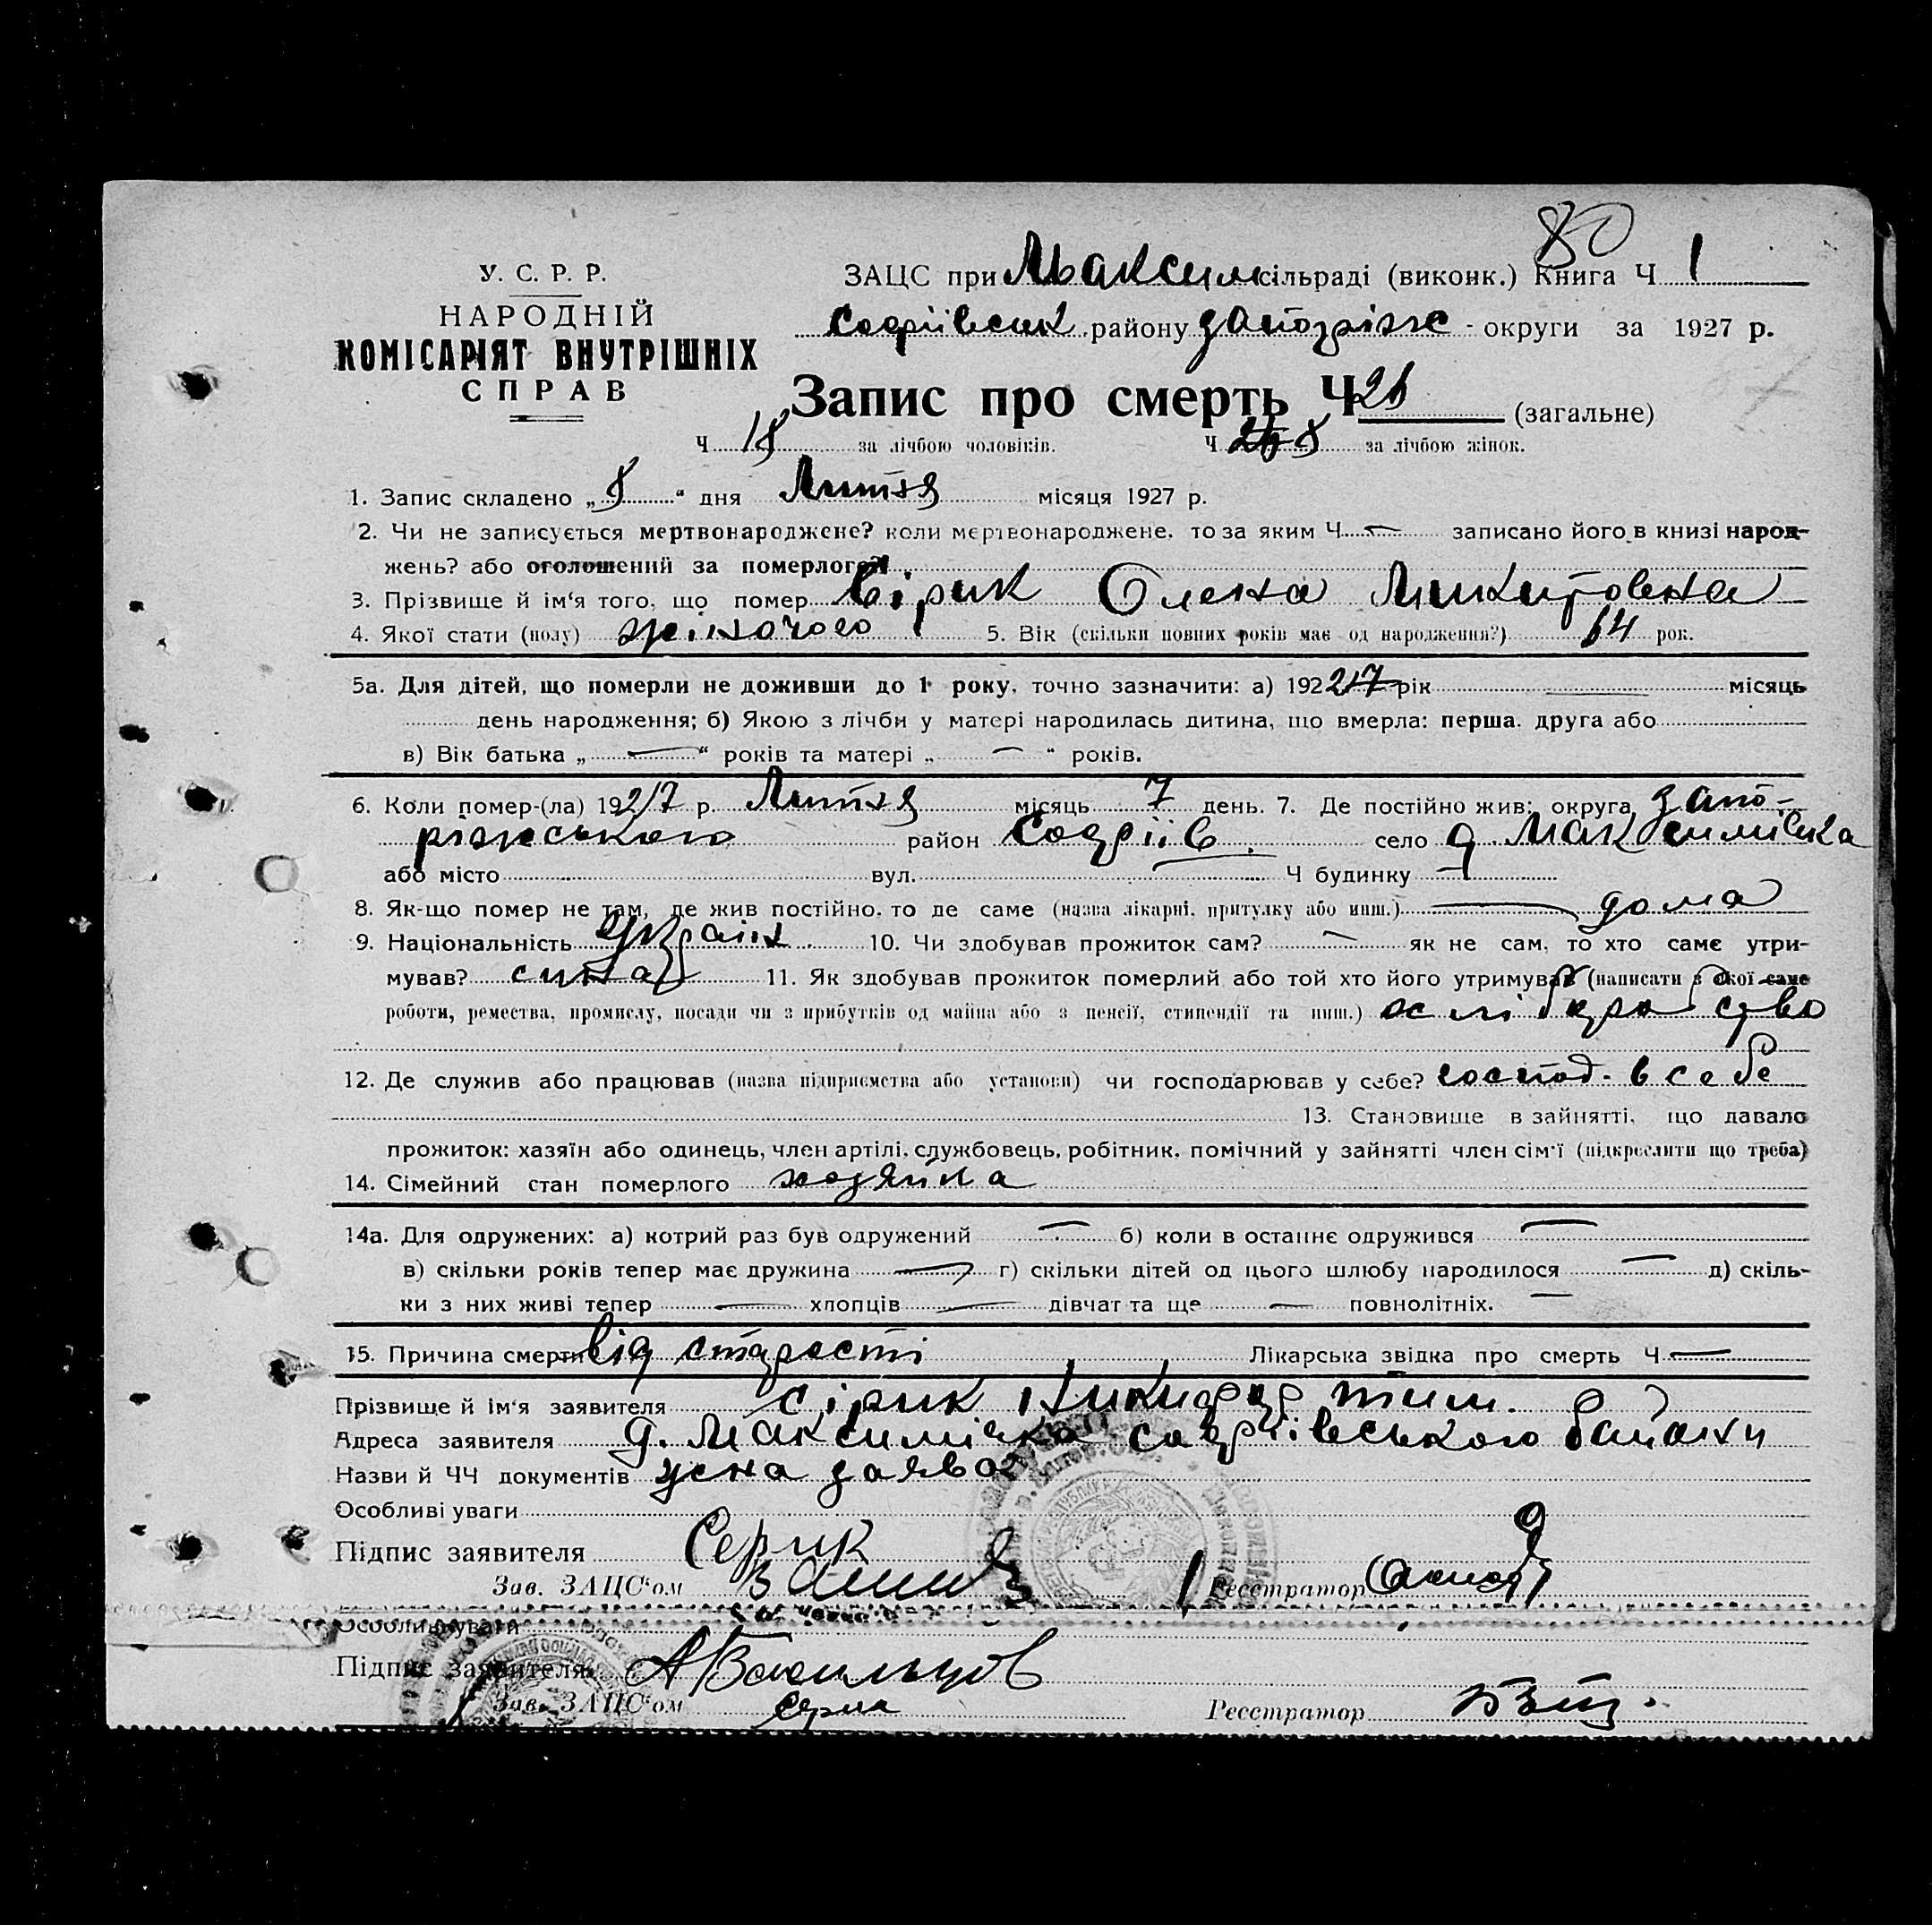 80
У. С. Р. Р.
НАРОДНІЙ
КОМІСАРІЯТ ВНУТРІШНІХ
СПРАВ
ЗАЦС при Максим сільраді (виконк.) Книга Ч 1
Софіївськ району Запоріж - округи за 1927 р.
Запис про смерть Ч 26 (загальне)
Ч 18 за лічбою чоловіків. Ч 8 за лічбою жінок.
1. Запис складено „ 8 “ дня Липтня місяця 1927 р.
2. Чи не записується мертвонароджене? коли мертвонароджене, то за яким Ч — записано його в книзі народ-
жень? або оголошений за померлого?
3. Прізвище й ім'я того, що помер Сірик Олена Микитовна
4. Якої стати (полу) жіночого 5. Вік (скільки повних років має од народження?) 64 рок.
5а. Для дітей, що померли не доживши до 1 року, точно зазначити: а) 192 рік — місяць
день народження; б) Якою з лічби у матері народилась дитина, що вмерла: перша, друга або
в) Вік батька „ — “ років та матері „ — “ років.
6. Коли помер-(ла) 1927 р. Липтня місяць 7 день. 7. Де постійно жив: округа Запо-
ріжського район Софіїв. село д. Максимівка
або місто вул. — Ч будинку —
8. Як-що помер не там, де жив постійно, то де саме (назва лікарні, притулку або инш.) — дома
9. Національність Україн. 10. Чи здобував прожиток сам? — як не сам, то хто саме утри-
мував? сина 11. Як здобував прожиток померлий або той хто його утримував (написати з якої саме
роботи, ремества, промислу, посади чи з прибутків од майна або з пенсії, стипендії та инш.) хлібораство
12. Де служив або працював (назва підприємства або установи) чи господарював у себе? господ. в себе
13. Становище в зайнятті, що давало
прожиток: хазяїн або одинець, член артілі, службовець, робітник, помічний у зайнятті член сім'ї (підкреслити що треба)
14. Сімейний стан померлого хозяйка
14а. Для одружених: а) котрий раз був одружений — б) коли в останнє одружився —
в) скільки років тепер має дружина — г) скільки дітей од цього шлюбу народилося — д) скіль-
ки з них живі тепер — хлопців — дівчат та ще — повнолітніх. —
15. Причина смерти від старости Лікарська звідка про смерть Ч —
Прізвище й ім'я заявителя Сірик Никифор Тим.
Адреса заявителя д. Максимівка Софіївського району
Назви й ЧЧ документів усна заява
Особливі уваги
Підпис заявителя Серик
Зав. ЗАЦС'ом Реєстратор
Особливі уваги
Підпис заявителя
Зав. ЗАЦС'ом Реєстратор